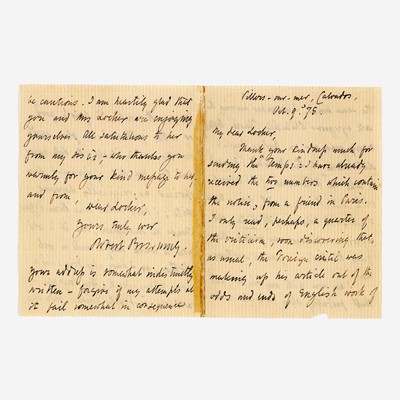 Villers-sur-mer, Calvados,
Oct. 9. '75
My dear Locker,
Thank you kindly much for
sending the "Temps": I have already
received the two numbers which contain
the notice, from a friend in Paris.
I only read, perhaps, a quarter of
the criticism, soon discovering that,
as usual, the Foreign critic was
making up his article out of the
odds and ends of English work of
be cautious. I am heartily glad that
you and Mrs Locker are enjoying
yourselves. All salutations to her
from my sis – who thanks you
warmly for your kind message to her,
and from,
dear Locker,
Yours truly ever
Robert Browning.
Your address is somewhat indistinctly
written – forgive if my attempts at
it fail somewhat in consequence